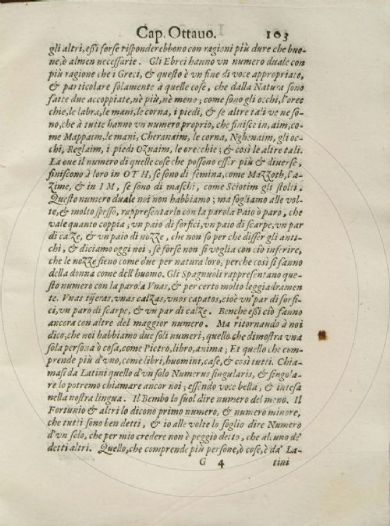 Cap. Ottauo. 103
gli altri, essi forse risponderebbono con ragioni più dure che buo-
ne, ò almen necessarie. Gli Ebrei hanno vn numero duale con
più ragione che i Greci, & questo è vn fine di voce appropriato,
& particolare solamente à quelle cose, che dalla Natura sono
fatte due accoppiate, nè più, nè meno; come sono gli occhi, l'orec
chie, le labra, le mani, le corna, i piedi, & se altre tali ve ne so-
no, che à tutte hanno vn numero proprio, che finisce in, aim, co
me Mappaim, le mani, Cheranaim, le corna, Nghenaim, gli oc-
chi, Reglaim, i piedi Oznaim, le orecchie; & così le altre tali.
La oue il numero di quelle cose che possono esser più & diuerse,
finiscono à loro in OTH, se sono di femina, come Mazzoth, l'a-
zime, & in IM, se sono di maschi, come Sciotim gli stolti.
Questo numero duale noi non habbiamo; ma sogliamo alle vol-
te, & molto spesso, rappresentarlo con la parola Paio ò paro, che
vale quanto coppia, vn paio di forfici, vn paio di scarpe, vn par
di calze, & vn paio di nozze, che non so per che disser gli anti-
chi, & diciamo oggi noi, se forse non si voglia con ciò inferire,
che le nozze sieno come due per natura loro, perche così si fanno
della donna come dell'huomo. Gli Spagnuoli rappresentano que-
sto numero con la parola Vnas, & per certo molto leggiadramen
te. Vnas tijeras, vnas calzas, vnos capatos, cioè vn par di forfi-
ci, vn paro di scarpe, & vn par di calze. Benche essi ciò fanno
ancora con altre del maggior numero. Ma ritornando à noi
dico, che noi habbiamo due soli numeri, quello che dimostra vna
sola persona ò cosa, come Pietro, libro, anima; Et quello che com-
prende più d'vno, come libri, huomini, case, & così tutti. Chia-
masi da Latini quello d'vn solo Numerus singularis, & singola-
re lo potremo chiamare ancor noi; essendo voce bella, & intesa
nella nostra lingua. Il Bembo lo suol dire numero del meno. Il
Fortunio & altri lo dicono primo numero, & numero minore,
che tutti sono ben detti, & io alle volte lo soglio dire Numero
d'vn solo, che per mio credere non è peggio detto, che alcuno de'
detti altri. Quello, che comprende più persone, ò cose, è da' La-
G 4 tini